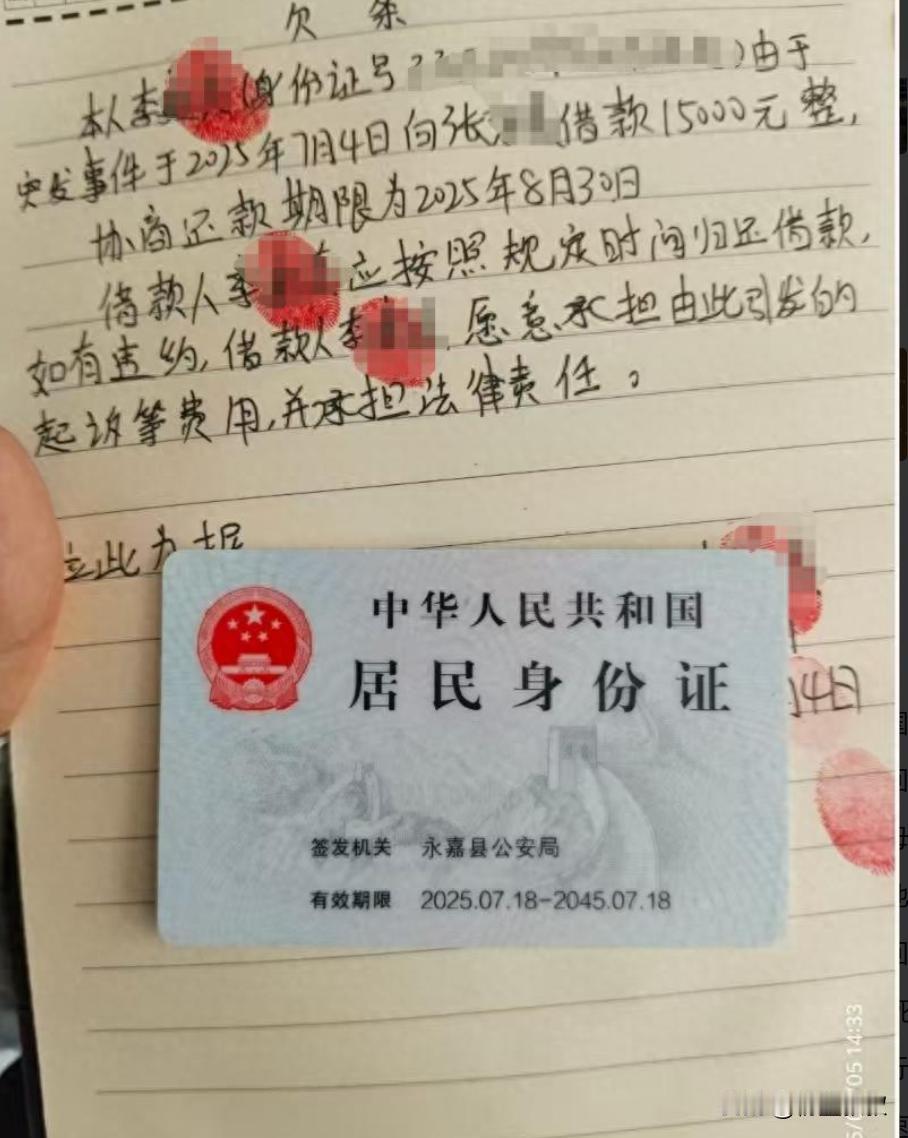 欠 条
本人李 身份证号 )由于
突发事件于2025年7月4日向张 借款15000元整,
协商还款期限为2025年8月30日
借款人李 应按照规定时间归还借款,
如有违约,借款人李 愿意承担由此引发的
起诉等费用,并承担法律责任。
立此为据
14日
中华人民共和国
居民身份证
签发机关 永嘉县公安局
有效期限 2025.07.18-2045.07.18
05 14:33